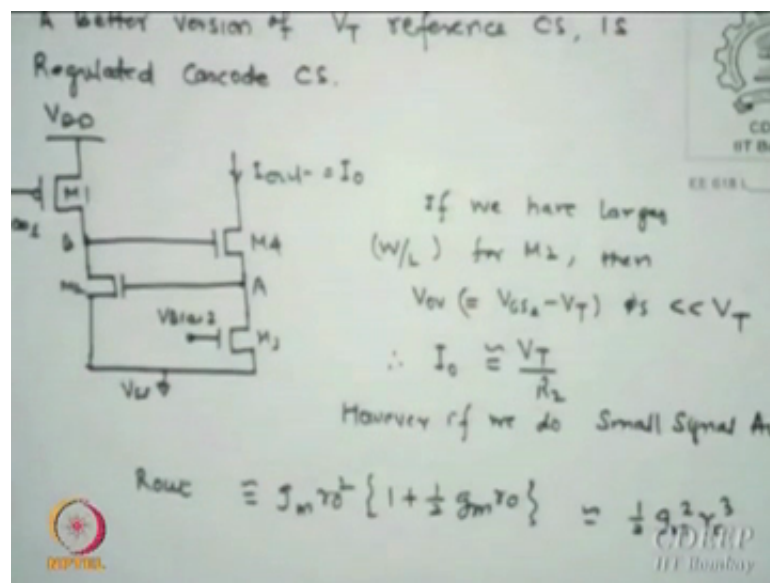 A Better Version of VT reference CS, is
Regulated Cascode CS.
VDD
Iout = I0
M1
B
M4
M2
A
VBias2
M3
If we have larger
(W/L) for M2, then
Vov (= VGS2 - VT) is << VT
∴ I0 ≅ VT/R2
However if we do Small Signal
Rout ≡ gm ro² {1 + ½ gm ro} ≃ ½ gm² ro³
EE 618 L
NPTEL
CDEEP
IIT Bombay